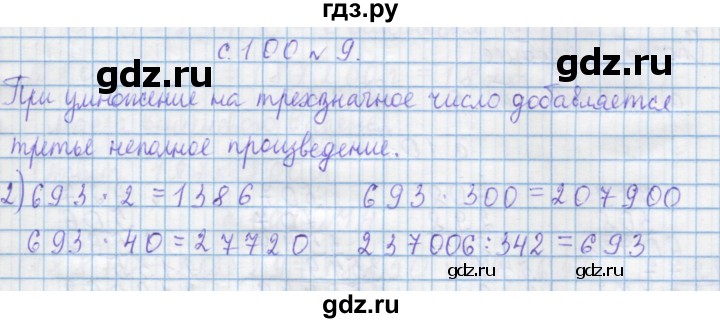 гдз.ру
с. 100 № 9.
gdz.ru gdz.ru
При умножение на трехзначное число добавляется
третье неполное произведение.
2) 693 · 2 = 1386 693 · 300 = 207900
693 · 40 = 27720 237006 : 342 = 693
gdz.ru gdz.ru
gdz.ru